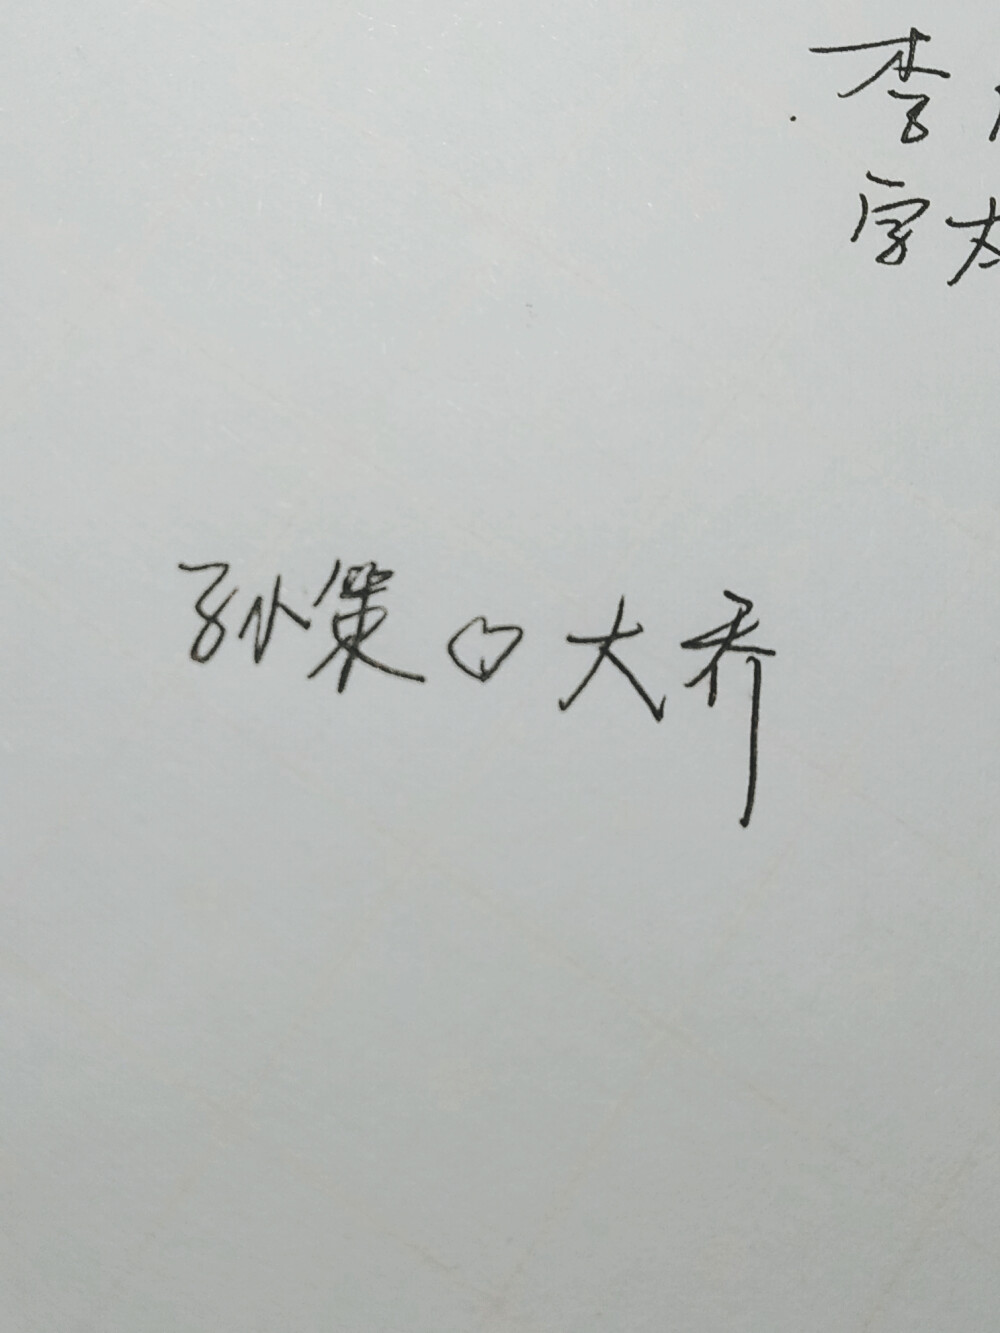 李
字太
孙策♡大乔